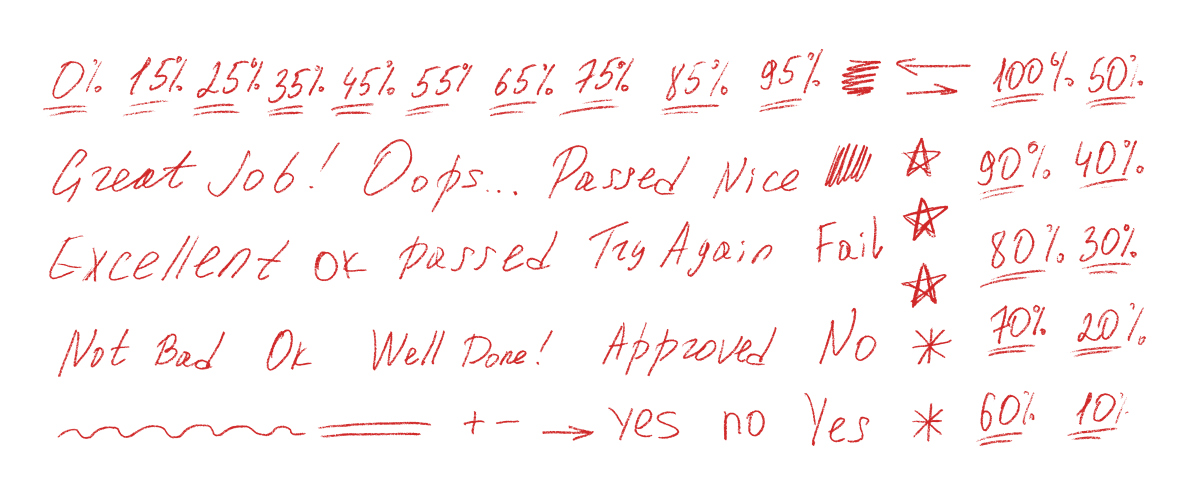 0% 15% 25% 35% 45% 55% 65% 75% 85% 95% 100% 50%
Great Job! Oops... Passed Nice 90% 40%
Excellent OK passed Try Again Fail 80% 30%
Not Bad Ok Well Done! Approved No 70% 20%
+ - yes no Yes 60% 10%